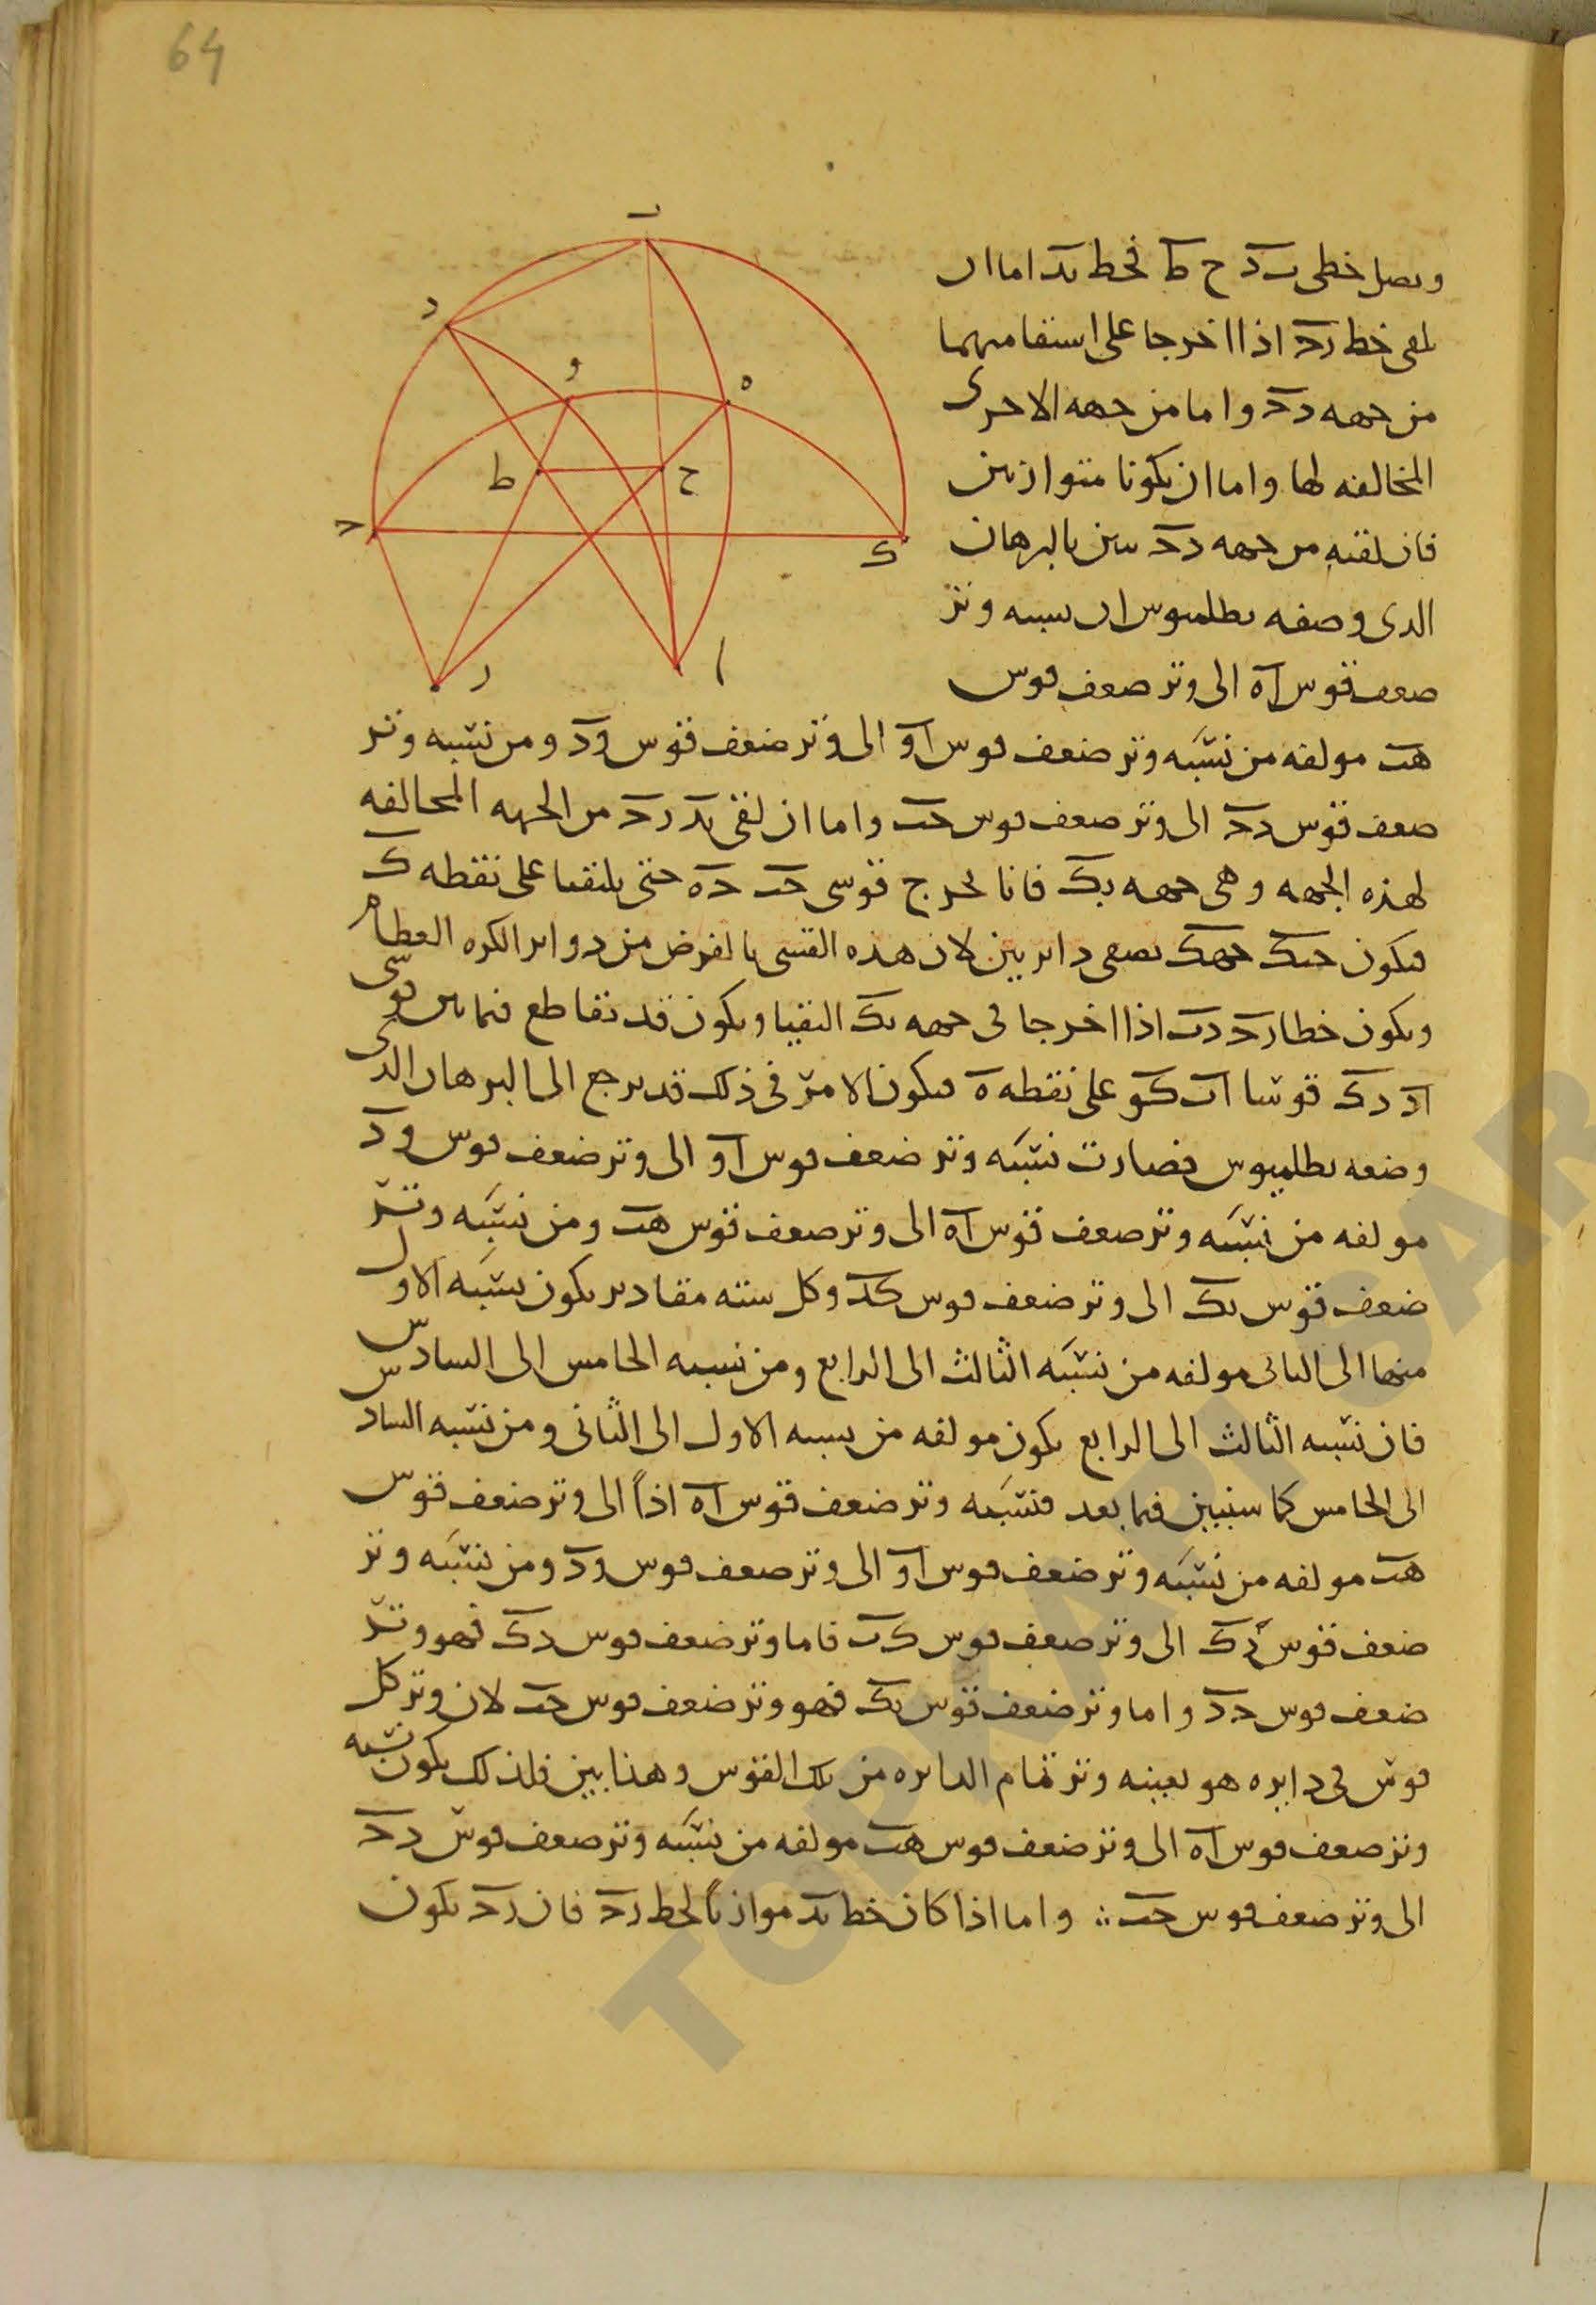 64
ب
د
و
ه
ط
ح
ح
ك
ر
ا
ونصل خطى ب د ح ط فخط بد اما ان
يلقى خط رح اذا اخرجا على استقامتهما
من جهه دح واما من جهه الاخرى
المخالفه لها واما ان يكونا متوازيين
فان لقيه من جهه دح تبين بالبرهان
الذى وصفه بطلميوس ان نسبه وتر
ضعف قوس اه الى وتر ضعف قوس
هب مولفه من نسبه وتر ضعف قوس او الى وتر ضعف قوس ود ومن نسبه وتر
ضعف قوس دح الى وتر ضعف قوس حب واما ان لقى بد رح من الجهه المخالفه
لهذه الجهه وهى جهه بك فانا نخرج قوسى حب حه حتى يلتقيا على نقطه ك
فيكون حبك حهك نصفى دايرتين لان هذه القسى بالفرض من دواير الكره العظام
ويكون خطا رح دب اذا اخرجا فى جهه بك التقيا ويكون قد تقاطع فيما بين قوسى
اد دك قوسا اب كو على نقطه ه فيكون الامر فى ذلك قد يرجع الى البرهان الذى
وضعه بطلميوس فصارت نسبه وتر ضعف قوس او الى وتر ضعف قوس ود
مولفه من نسبه وتر ضعف قوس اه الى وتر ضعف قوس هب ومن نسبه وتر
ضعف قوس بك الى وتر ضعف قوس كد وكل سته مقادير يكون نسبه الاول
منها الى الثانى مولفه من نسبه الثالث الى الرابع ومن نسبه الخامس الى السادس
فان نسبه الثالث الى الرابع يكون مولفه من نسبه الاول الى الثانى ومن نسبه السادس
الى الخامس كما سنبين فيما بعد فنسبه وتر ضعف قوس اه اذاً الى وتر ضعف قوس
هب مولفه من نسبه وتر ضعف قوس او الى وتر ضعف قوس ود ومن نسبه وتر
ضعف قوس دك الى وتر ضعف قوس كب فاما وتر ضعف قوس دك فهو وتر
ضعف قوس حد واما وتر ضعف قوس بك فهو وتر ضعف قوس حب لان وتر كل
قوس فى دايره هو بعينه وتر تمام الدايره من تلك القوس وهذا بين فلذلك يكون نسبه
وتر ضعف قوس اه الى وتر ضعف قوس هب مولفه من نسبه وتر ضعف قوس دح
الى وتر ضعف قوس حب ∴ واما اذا كان خط بد موازياً لخط رح فان رح يكون